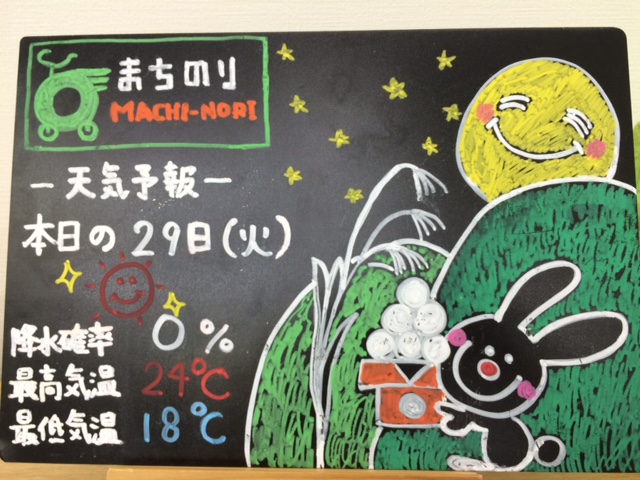 まちのり
MACHI-NORI
－天気予報－
本日の29日(火)
降水確率 0%
最高気温 24℃
最低気温 18℃